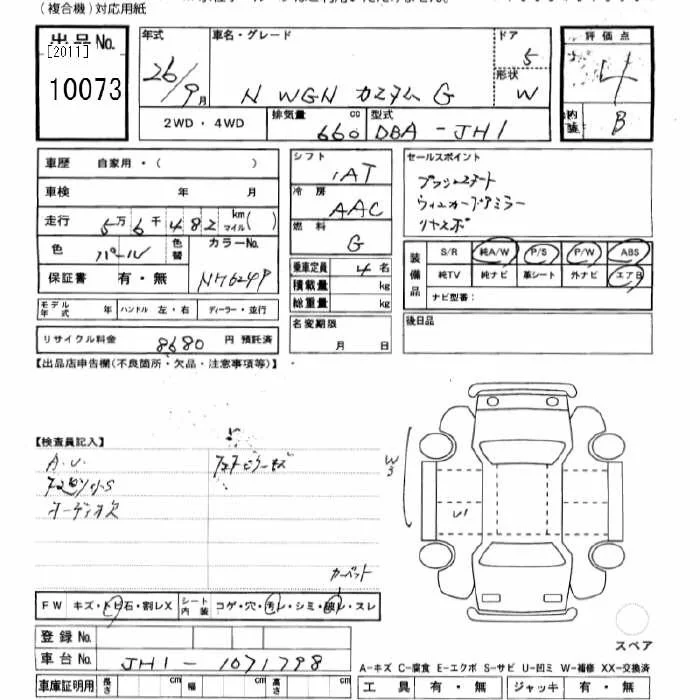 (複合機)対応用紙
出品No.
[2011]
10073
年式
26/9月
車名・グレード
N WGN カスタム G
ドア
5
形状
W
評価点
4
内装
B
2WD・4WD
排気量
660 cc
型式
DBA-JH1
車歴 自家用・( )
車検 年 月
走行 5万6千482 km マイル( )
色 パール
色替
カラーNo.
NH624P
保証書 有・無
モデル年式 年 ハンドル 左・右 ディーラー・並行
リサイクル料金 8680 円 預託済
シフト
IAT
冷房
AAC
燃料
G
乗車定員 4名
積載量 kg
総重量 kg
名変期限
月 日
セールスポイント
プッシュスタート
ウィンカードアミラー
リヤスポ
装備品
S/R 純A/W P/S P/W ABS
純TV 純ナビ 革シート 外ナビ エアB
ナビ型番:
後日品
【出品店申告欄(不良箇所・欠品・注意事項等)】
【検査員記入】
A.U.
オーディオ欠
W3
U1
カーペット
FW キズ・トビ石・割レX
シート内装 コゲ・穴・汚レ・シミ・破レ・スレ
登録No.
車台No. JH1-1071798
車庫証明用 長さ 幅 高さ
スペア
A-キズ C-腐食 E-エクボ S-サビ U-凹ミ W-補修 XX-交換済
工具 有・無 ジャッキ 有・無